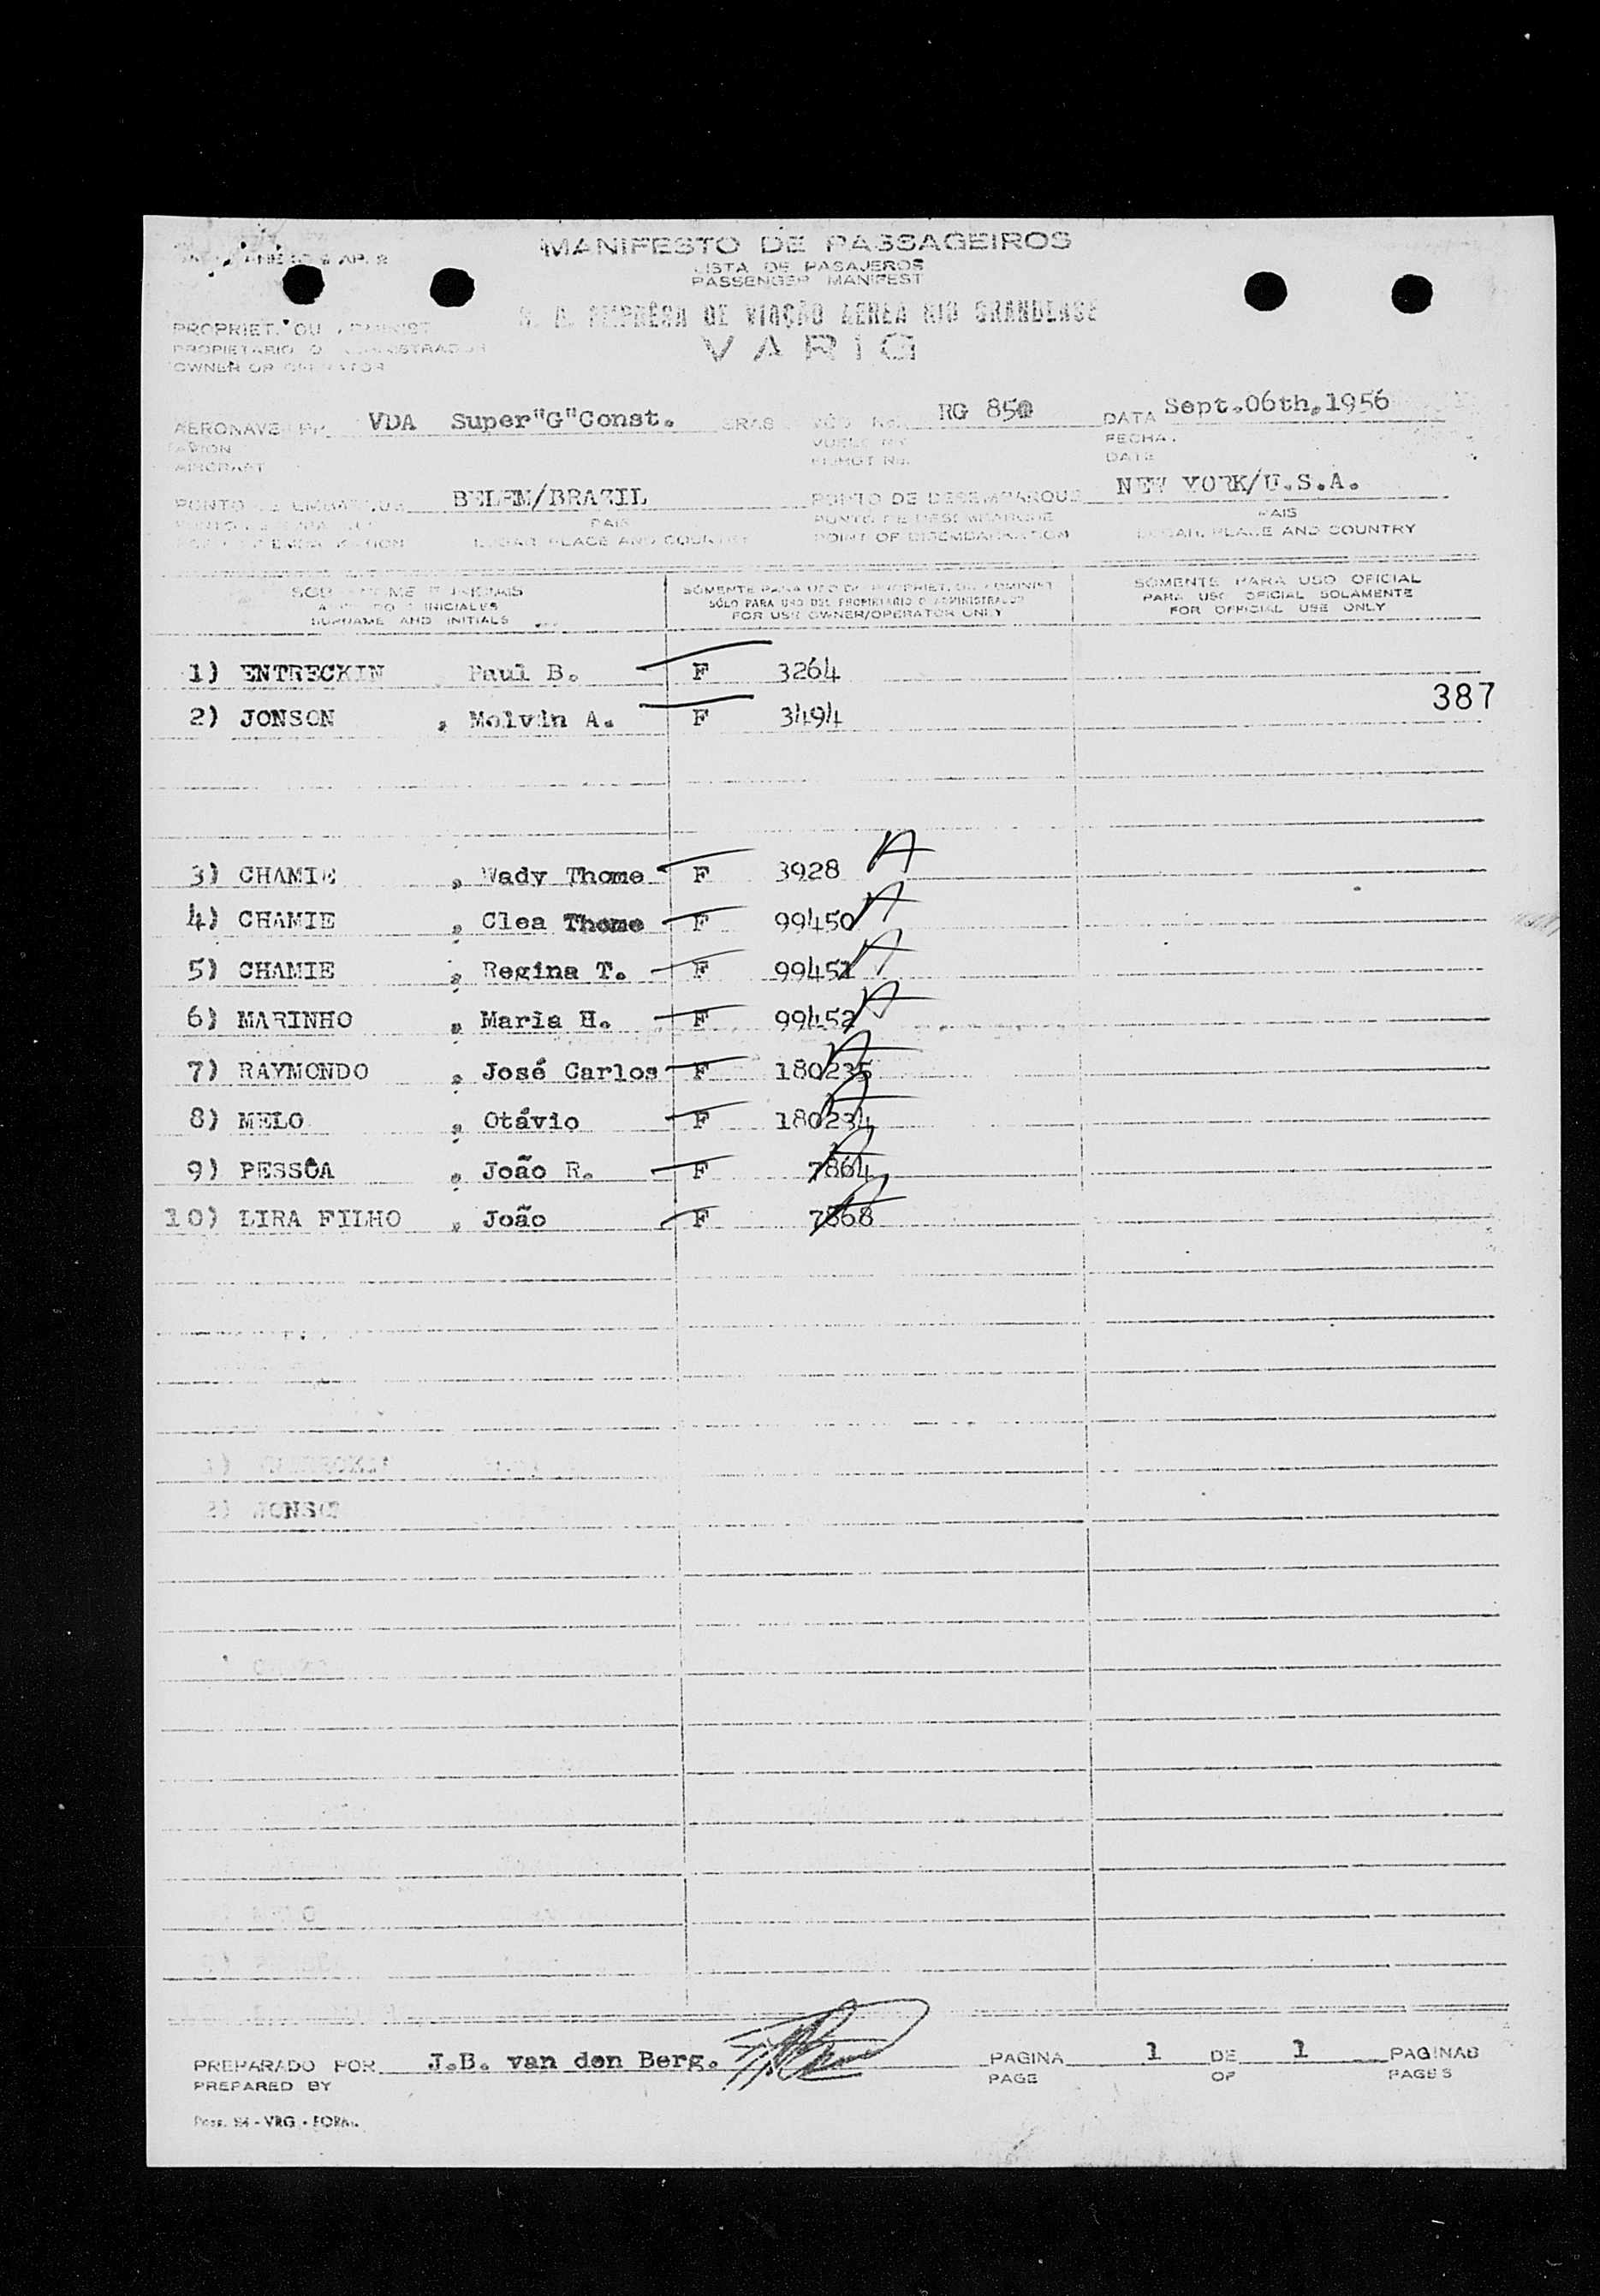 MANIFESTO DE PASSAGEIROS
LISTA DE PASAJEROS
PASSENGER MANIFEST
S. A. EMPRÊSA DE VIAÇÃO AEREA RIO GRANDENSE
VARIG
PROPRIET. OU ADMINIST
PROPIETARIO O ADMINISTRADOR
OWNER OR OPERATOR
AERONAVE PP. VDA Super"G"Const. BRAS VÔO No. RG 850 DATA Sept.06th,1956
AVION VUELO No. FECHA
AIRCRAFT FLIGHT No. DATE
PONTO DE EMBARQUE BELEM/BRAZIL PONTO DE DESEMBARQUE NEW YORK/U.S.A.
PAIS PUNTO DE DESEMBARQUE PAIS
LUGAR PLACE AND COUNTRY POINT OF DISEMBARKATION LUGAR, PLACE AND COUNTRY
SOBRENOME E INICIAIS SÓMENTE PARA USO DE PROPRIET. OU ADMINIST SÓMENTE PARA USO OFICIAL
APELLIDO E INICIALES SÓLO PARA USO DEL PROPIETARIO O ADMINISTRADOR PARA USO OFICIAL SOLAMENTE
SURNAME AND INITIALS FOR USE OWNER/OPERATOR ONLY FOR OFFICIAL USE ONLY
1) ENTRECKIN , Paul B. F 3264
387
2) JONSON , Molvin A. F 3494
3) CHAMIE , Wady Thome F 3928 A
4) CHAMIE , Clea Thome F 99450 A
5) CHAMIE , Regina T. F 99451 A
6) MARINHO , Maria H. F 99452 A
7) RAYMONDO , José Carlos F 180235 A
8) MELO , Otávio F 180234
9) PESSÔA , João R. F 7864
10) LIRA FILHO , João F 7868
2) JONSO
PREPARADO POR J.B. van den Berg. PAGINA 1 DE 1 PAGINAS
PREPARED BY PAGE OF PAGES